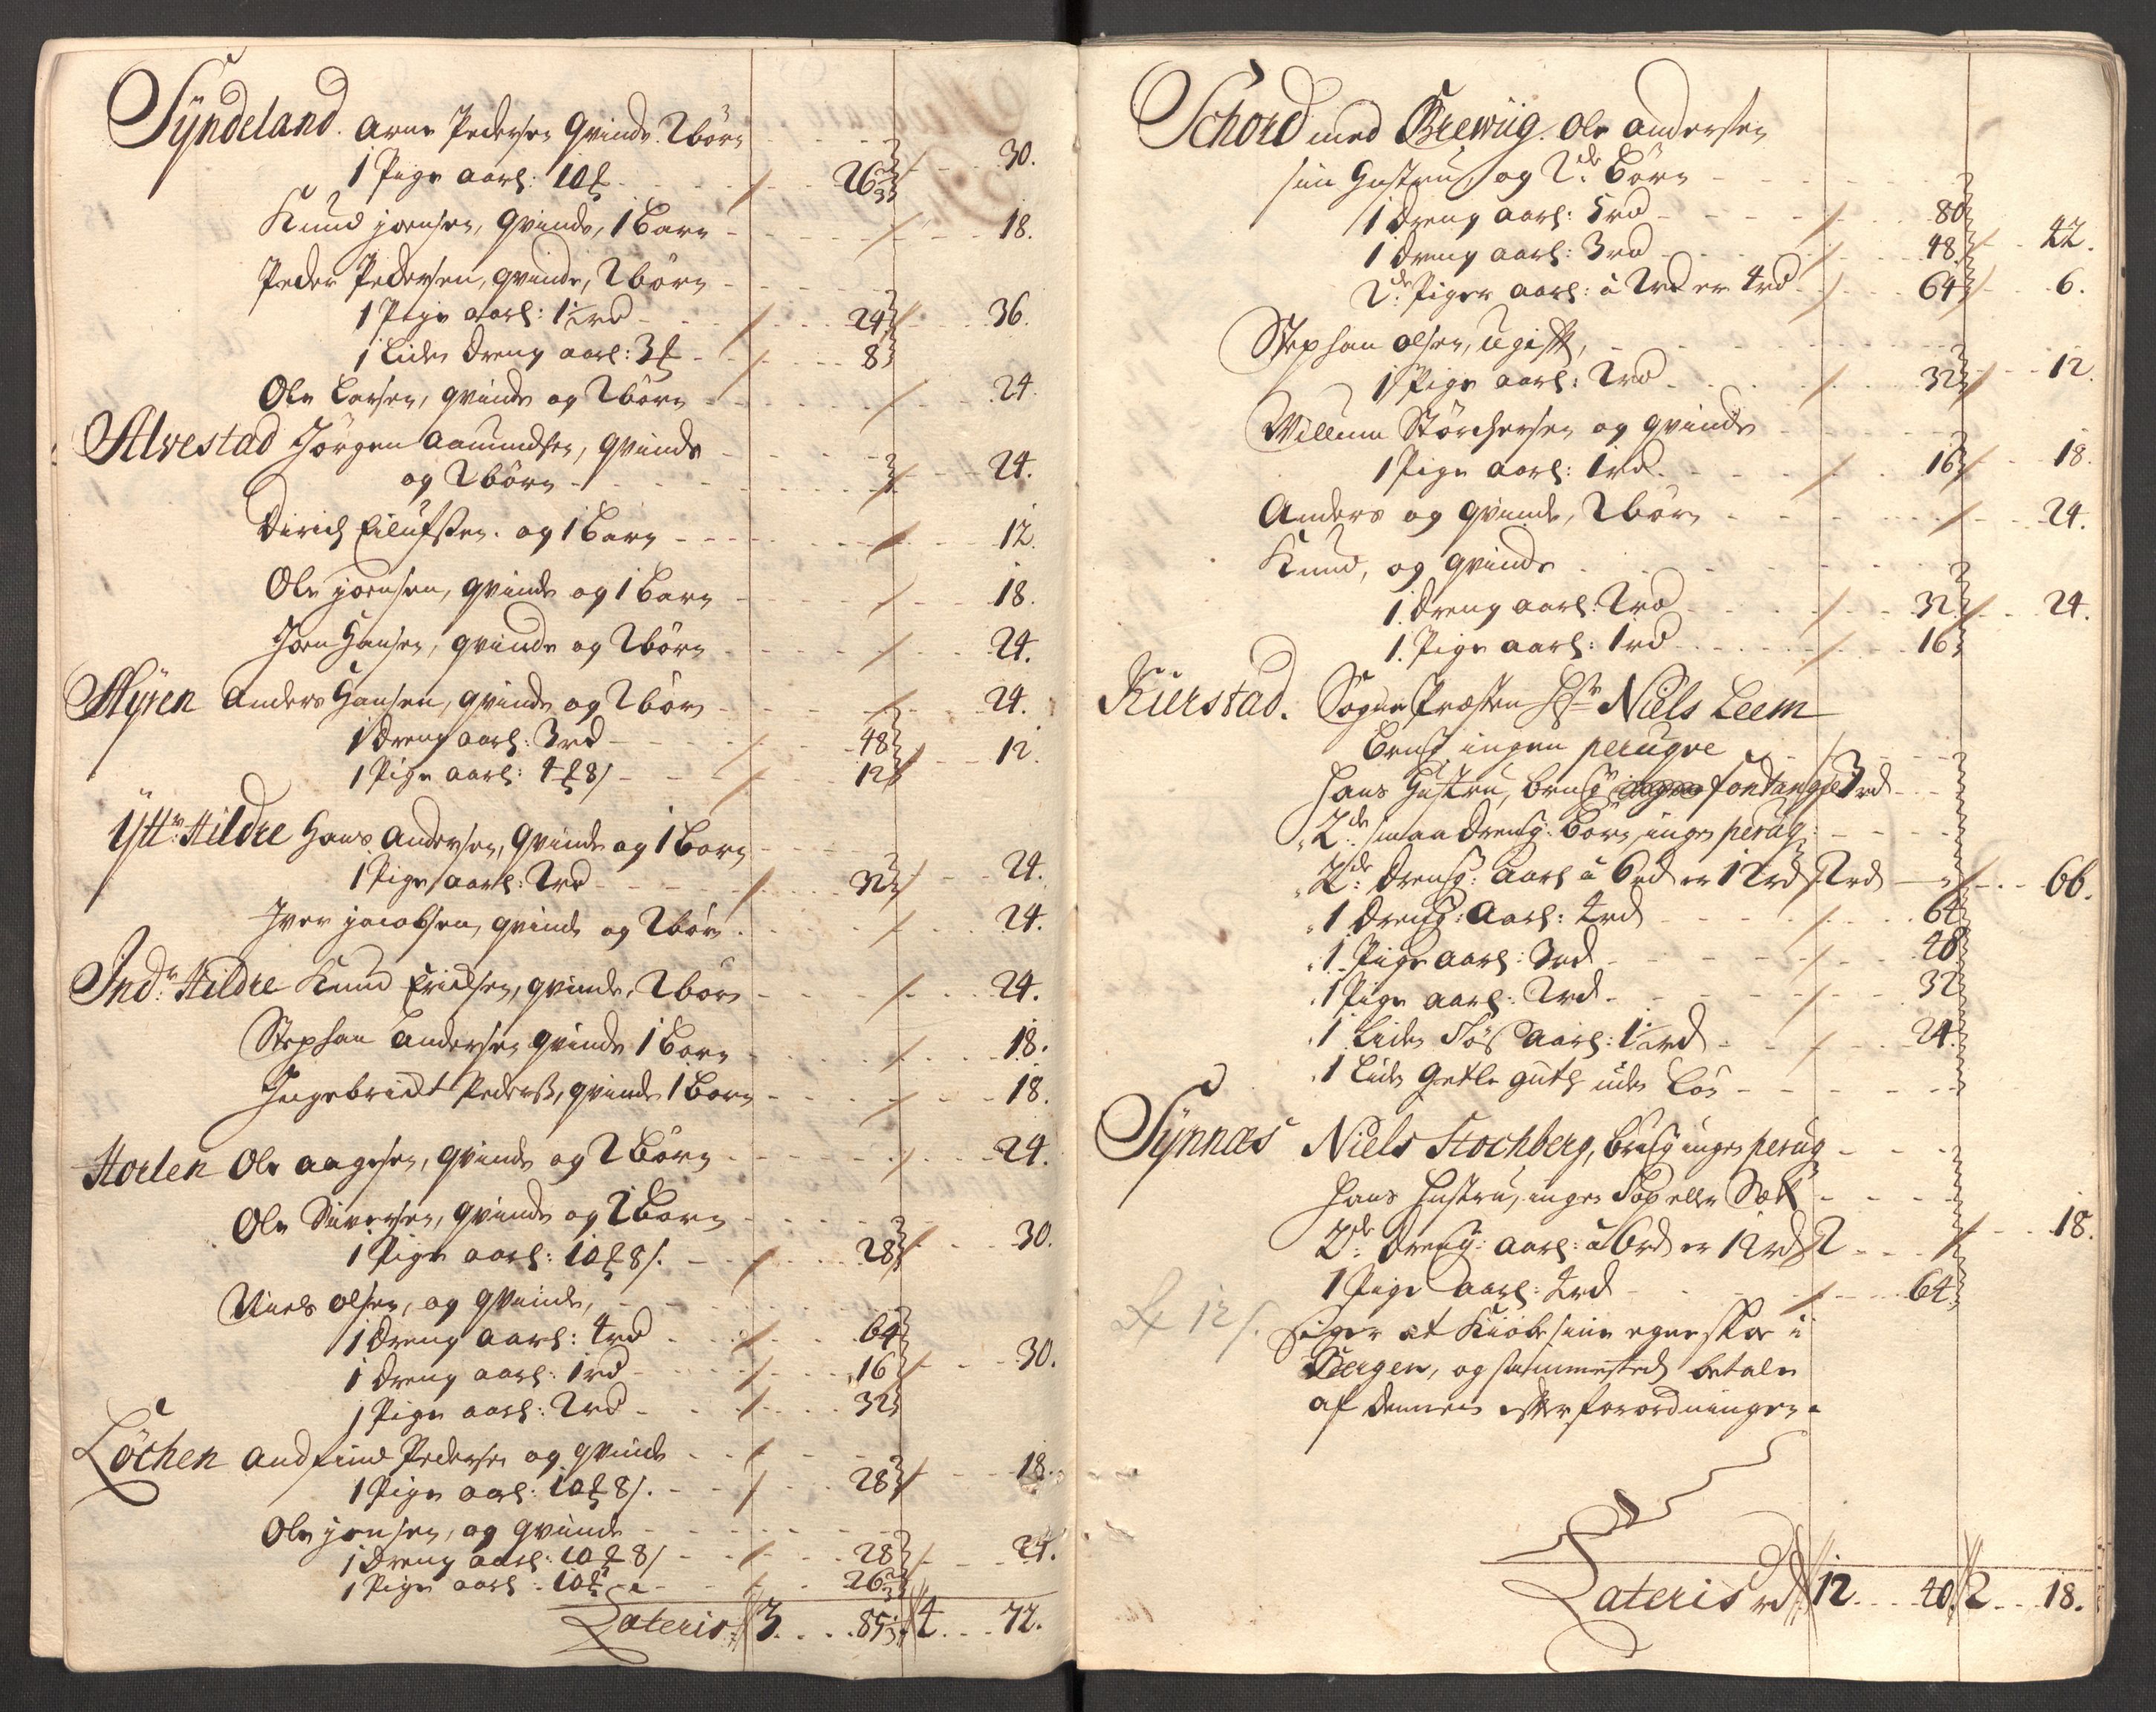 Syndeland. Arne Pedersen Qvinde 2 börn
1 Pige aarl: 10 ₰ 26 2/3 30.
Knud Joensen, Qvinde, 1 Barn 18.
Peder Pedersen, qvinde, 2 börn
1 Pige aarl: 1½ rd 24 36.
1 liden dreng aarl: 3 ₰ 8
Ole Larsen, qvinde og 2 börn 24.
Alvestad Jörgen Aamundsen, qvinde
og 2 börn 24.
Dirich Eilufsen. og 1 Barn 12.
Ole Joensen, qvinde og 1 Barn 18.
Joen Hansen, qvinde og 2 börn 24.
Myren Anders Hansen, qvinde og 2 börn 24.
1 dreng aarl: 3 rd 48 12.
1 Pige aarl: 4 ₰ 8 / 12
Ytt: Hildre Hans Andersen, Qvinde og 1 Barn
1 Pige aarl: 2 rd 32 24.
Iver Jacobsen, qvinde og 2 börn 24.
Ind: Hildre Knud Erichsen, qvinde, 2 börn 24.
Stephan Andersen qvinde 1 Barn 18.
Ingebricht Pederß, qvinde 1 Barn 18.
Ole Aagesen, qvinde og 2 Börn 24.
Ole Siversen, qvinde og 2 Barn
1 Pige aarl: 10 ₰ 8 /. 28 30.
Niels Olsen, og qvinde,
1 dreng aarl: 4 rd 64
1 dreng aarl: 1 rd 16 30.
1 Pige aarl: 2 rd 32
Löchen Andfind Pedersen og qvinde
1 Pige aarl: 10 ₰ 8 /. 28 18.
Ole Jensen, og qvinde
1 dreng aarl: 10 ₰ 8 / 28 24.
1 Pige aarl: 10 ₰ 26 2/3
Lateris 3. 85 1/3 4 72.
Schord med Brewiig. Ole Andersen
sin Hustru, og 2de Börn
1 dreng aarl: 5 rd 80
1 dreng aarl: 3 rd 48 42.
2de Piger aarl: à 2 rd er 4 rd 64 6.
Stephan Olsen, ugift,
1 Pige aarl: 2 rd 32 12.
Willum Störchersen og qvinde
1 Pige aarl: 1 rd 16 18.
Anders og qvinde, 2 börn 24.
Knud, og qvinde
1. dreng aarl: 2 rd 32 24.
1. Pige aarl: 1 rd 16
Kierstad. Sogne Præsten Hr Niels Leem
brug ingen peruqve
hans Hustru, brug fontange 3 rd
2de smaa dreng: Börn, ingen perüg:
2de dreng: Aarl à 6 rd er 12 rd 2 rd 66.
1 dreng: Aarl: 4 rd 64
1 Pige aarl: 3 rd 48
1 Pige aarl: 2 rd 32
1 liden Tös Aarl: 1½ rd 24.
1 liden Getle gut uden Lön
Synnæs Niels Stochberg, brug ingen perüg
hans Hustru, ingen Top eller Sæt
2de dreng: aarl: à 6 rd er 12 rd 2 18.
1 Pige Aarl: 4 rd 64
siger at Kiöbe sine egne skoe i
Bergen, og sammested betale
af dennem efter forordningen.
Lateris rd 12. 40. 2 18.